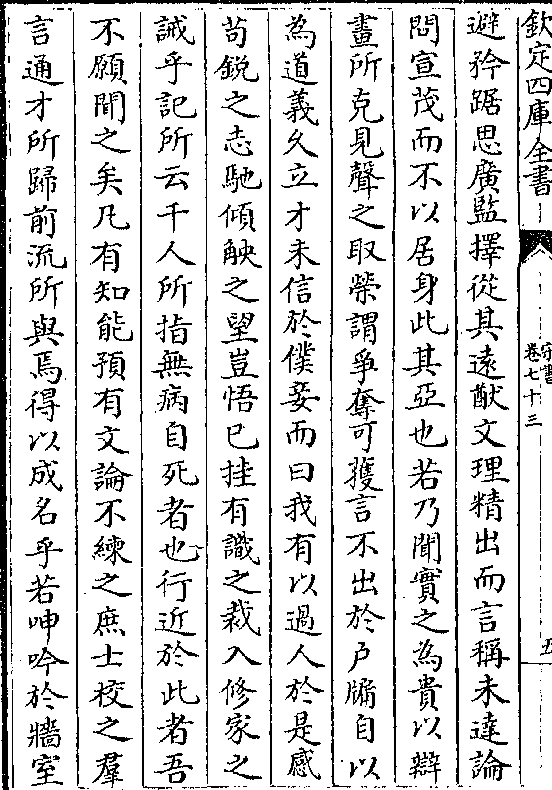 欽定四庫全書
宋書
卷七十三
五
避矜踞思廣監擇從其遠猷文理精出而言稱未達論
問宣茂而不以居身此其亞也若乃聞實之為貴以辯
畫所克見聲之取榮謂爭奪可獲言不出於戶牖自以
為道義久立才未信於僕妾而曰我有以過人於是感
苟銳之志馳傾觖之望豈悟已挂有識之裁入修家之
誡乎記所云千人所指無病自死者也行近於此者吾
不願聞之矣凡有知能預有文論不練之庶士校之羣
言通才所歸前流所與焉得以成名乎若呻吟於牆室